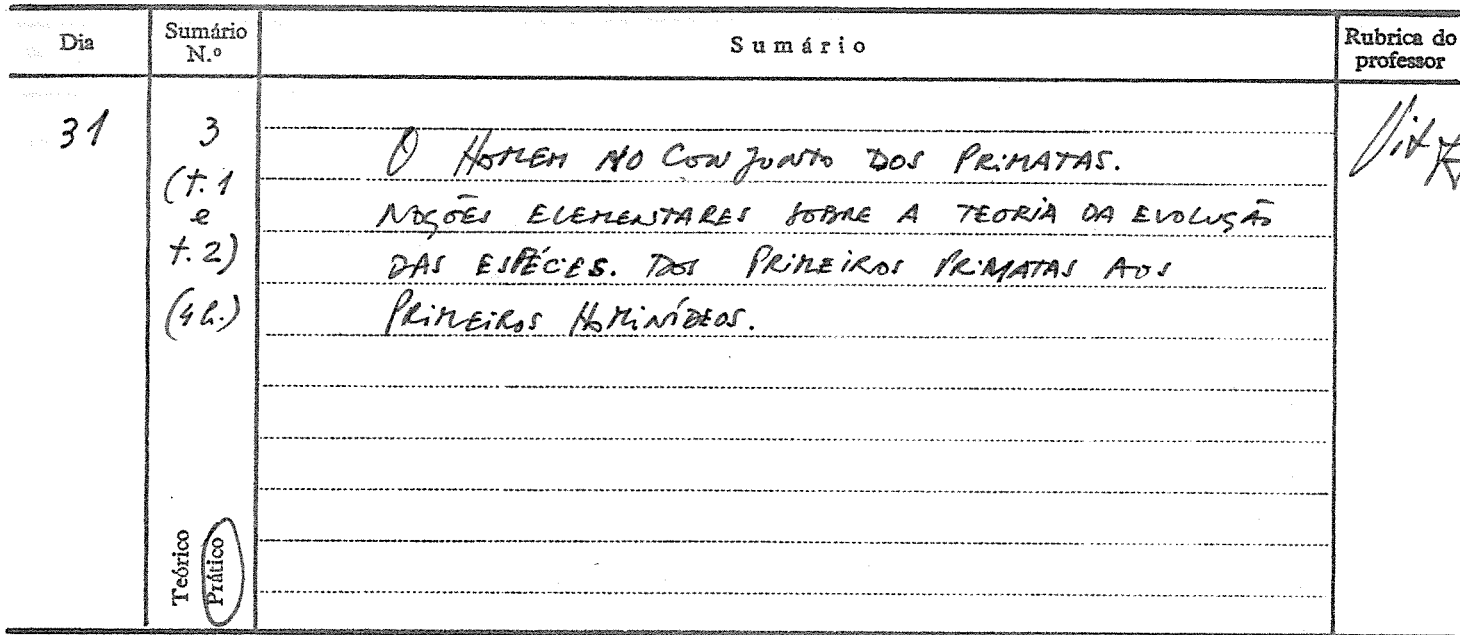 Dia
Sumário
N.º
Sumário
Rubrica do
professor
31
3
(t.1
e
t.2)
(4 h.)
O HOMEM NO CONJUNTO DOS PRIMATAS.
NOÇÕES ELEMENTARES SOBRE A TEORIA DA EVOLUÇÃO
DAS ESPÉCIES. DOS PRIMEIROS PRIMATAS AOS
PRIMEIROS HOMINÍDEOS.
Teórico
Prático